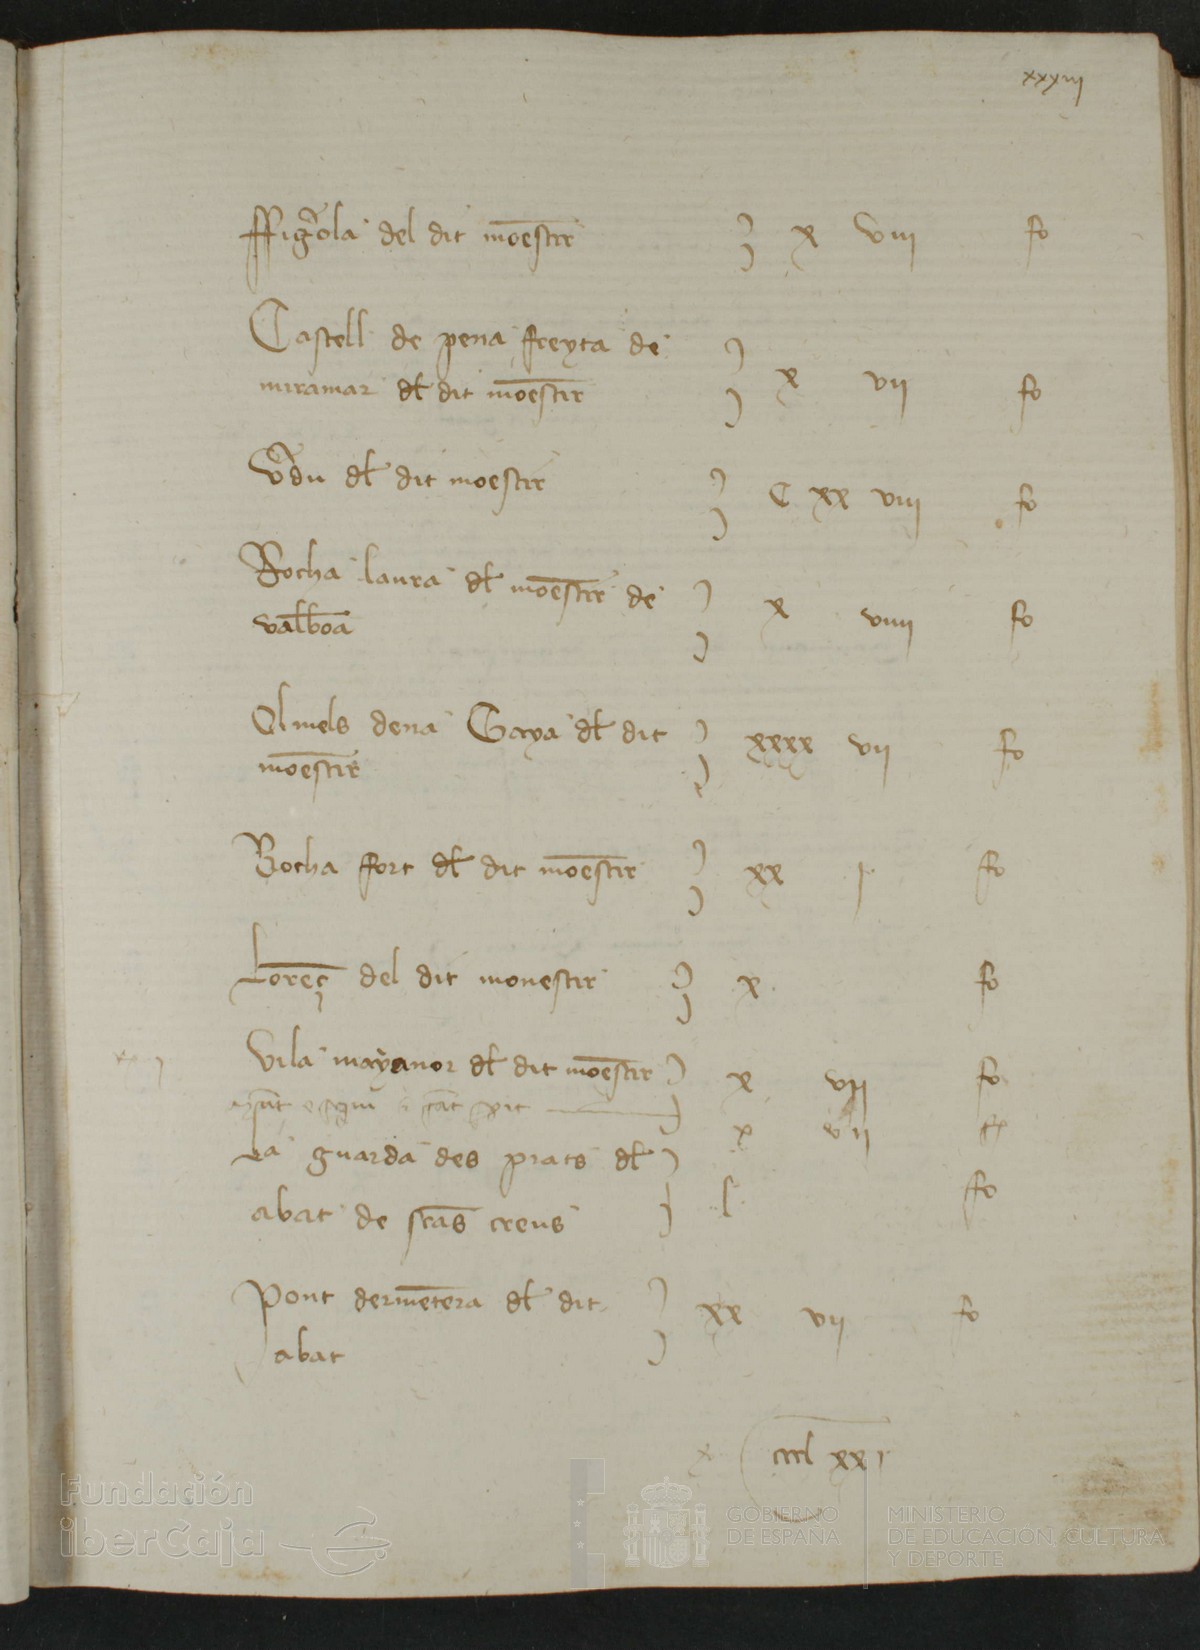 xxxiii
ffigrola del dit moestir x viii fo
Castell de pena freyta de
miramar dl dit moestir x vii fo
Vdu dl dit moestir C xx viii fo
Rocha laura dl moestir de
valboa x viiii fo
Olmels dena Gaya dl dit xxxx vii fo
moestir
Rocha fort dl dit moestir xx i fo
Loreç del dit monestir x fo
Vila mayanor dl dit moestir x vii fo
x vii
La guarda des prats dl
abat de stas creus l fo
Pont dermetera dl dit xx vii fo
abat
cccl xx i
Fundación
iberCaja
GOBIERNO
DE ESPAÑA
MINISTERIO
DE EDUCACIÓN, CULTURA
Y DEPORTE